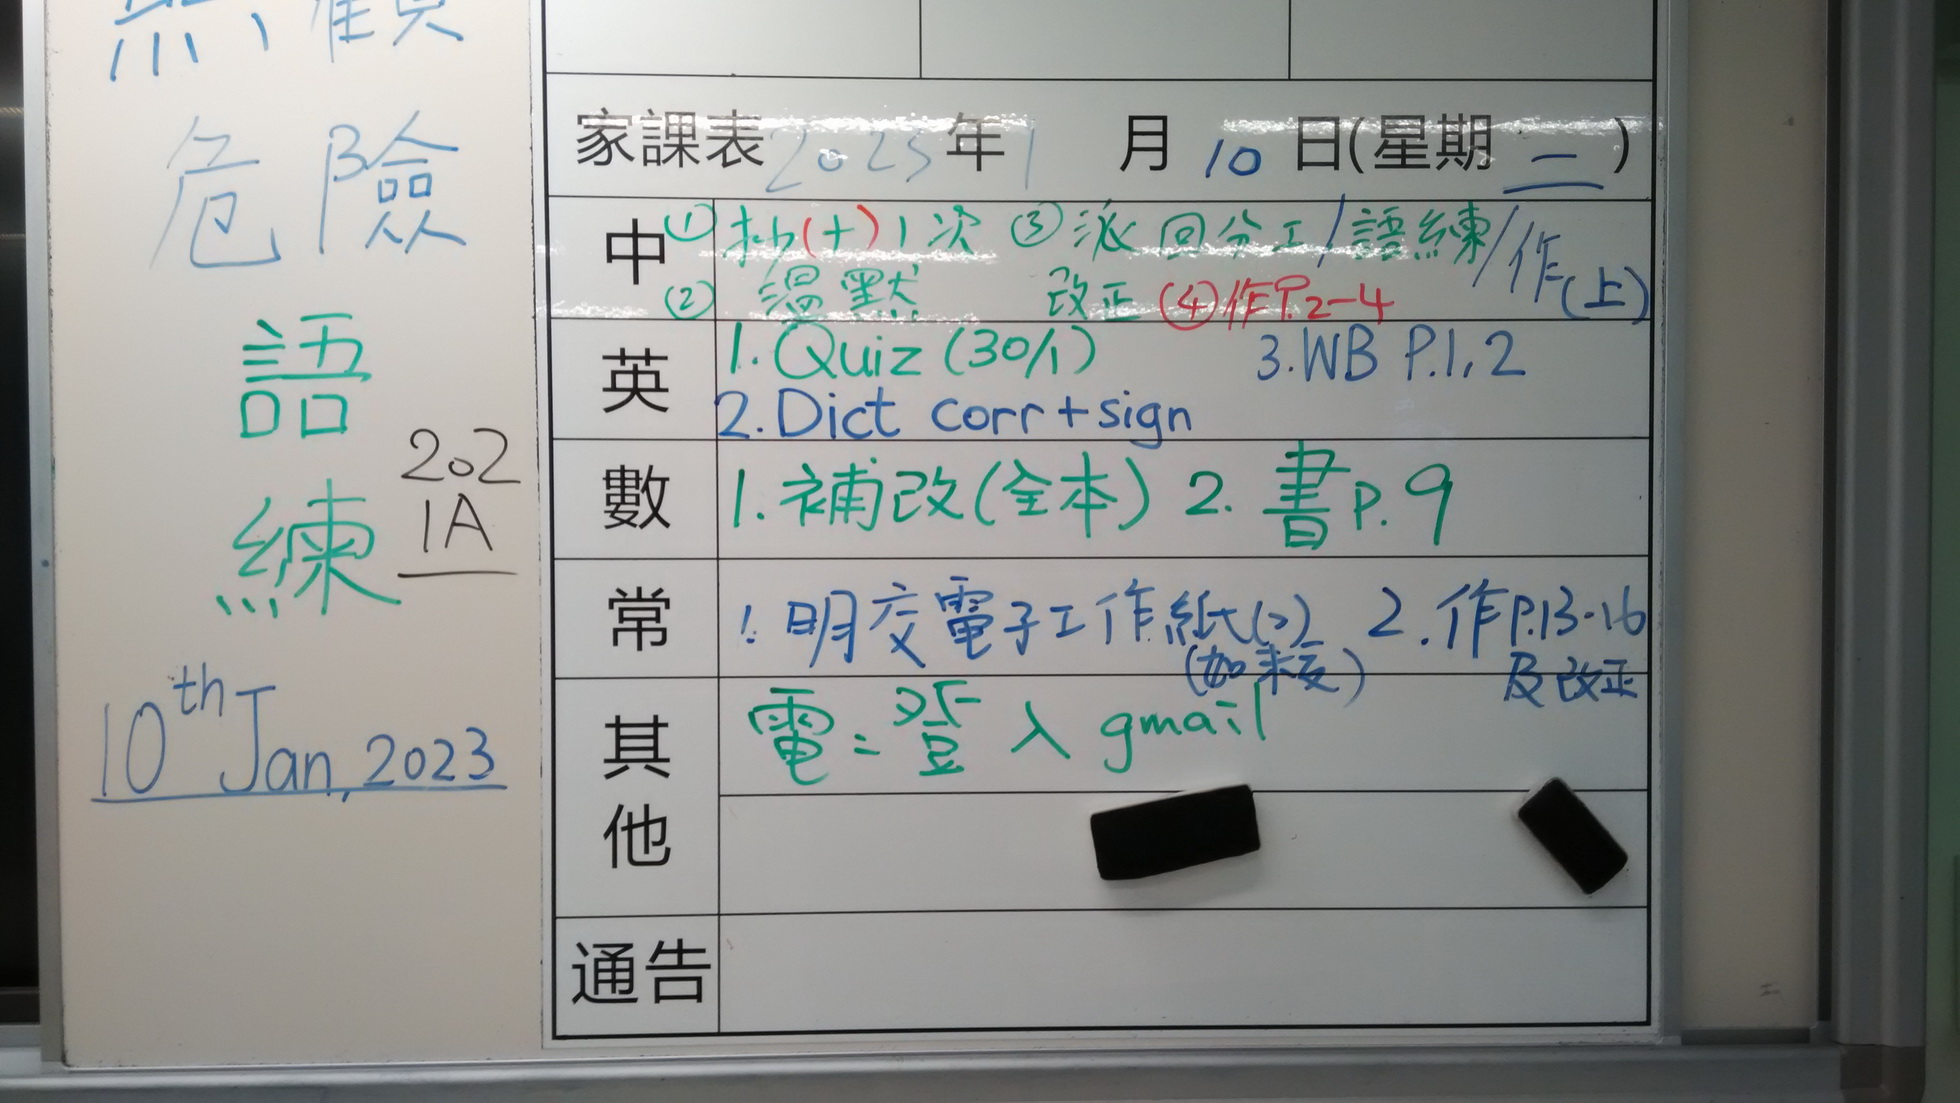 照顧
危險
語
練
202
1A
10th Jan, 2023
家課表 2023 年 1 月 10 日(星期 二 )
中 ① 抄(十)1次 ③ 派回分工/語練/作(上)
② 溫默 改正 ④作P.2-4
英 1. Quiz (30/1) 3. WB P.1, 2
2. Dict corr + sign
數 1. 補改(全本) 2. 書 P. 9
常 1. 明交電子工作紙(2) 2. 作P.13-16
(如未交) 及改正
其他 電：登入 gmail
通告